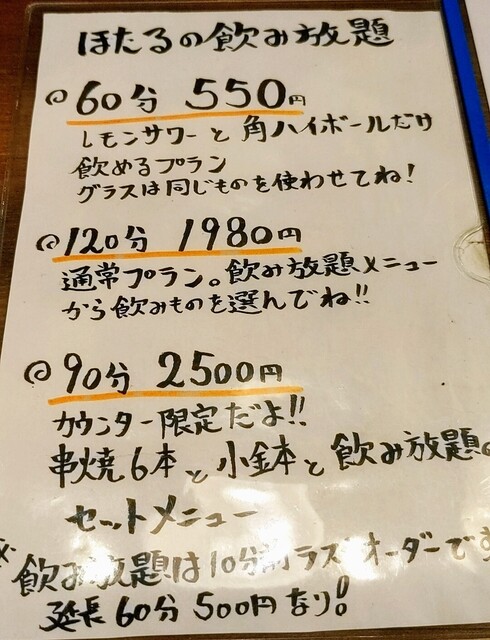 ほたるの飲み放題
60分 550円
レモンサワーと角ハイボールだけ
飲めるプラン
グラスは同じものを使わせてね!
120分 1980円
通常プラン。飲み放題メニュー
から飲みものを選んでね!!
90分 2500円
カウンター限定だよ!!
串焼6本と小鉢と飲み放題の
セットメニュー
※飲み放題は10分前ラストオーダーです
延長60分500円なり!